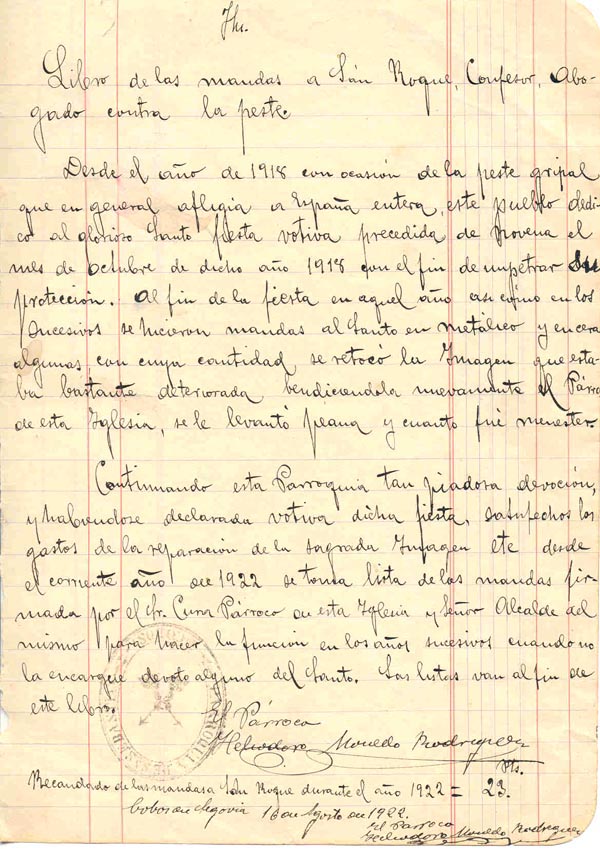 Jhs.
Libro de las mandas a San Roque, Confesor, Abo-
gado contra la peste.
Desde el año de 1918 con ocasión de la peste gripal
que en general afligia a España entera, este pueblo dedi
có al glorioso Santo fiesta votiva precedida de Novena el
mes de Octubre de dicho año 1918 con el fin de impetrar su
protección. Al fin de la fiesta en aquel año asi como en los
sucesivos se hicieron mandas al Santo en metálico y en cera
algunas, con cuya cantidad se retocó la Imagen que esta-
ba bastante deteriorada bendiciendola nuevamente el Párro
de esta Iglesia, se le levantó peana y cuanto fué menester.
Continuando esta Parroquia tan piadosa devoción,
y habiendose declarada votiva dicha fiesta, satisfechos los
gastos de la reparación de la sagrada Imagen etc desde
el corriente año de 1922 se toma lista de las mandas fir-
mada por el Sr. Cura Párroco de esta Iglesia y Señor Alcalde del
mismo para hacer la función en los años sucesivos cuando no
la encargue devoto alguno del Santo. Las listas van al fin de
este libro.
El Párroco
Heliodoro Monedo Rodriguez
Pts.
Recaudado de las mandas a San Roque durante el año 1922 = 23.
Cobos de Segovia 16 de Agosto de 1922.
El Párroco
Heliodoro Monedo Rodriguez